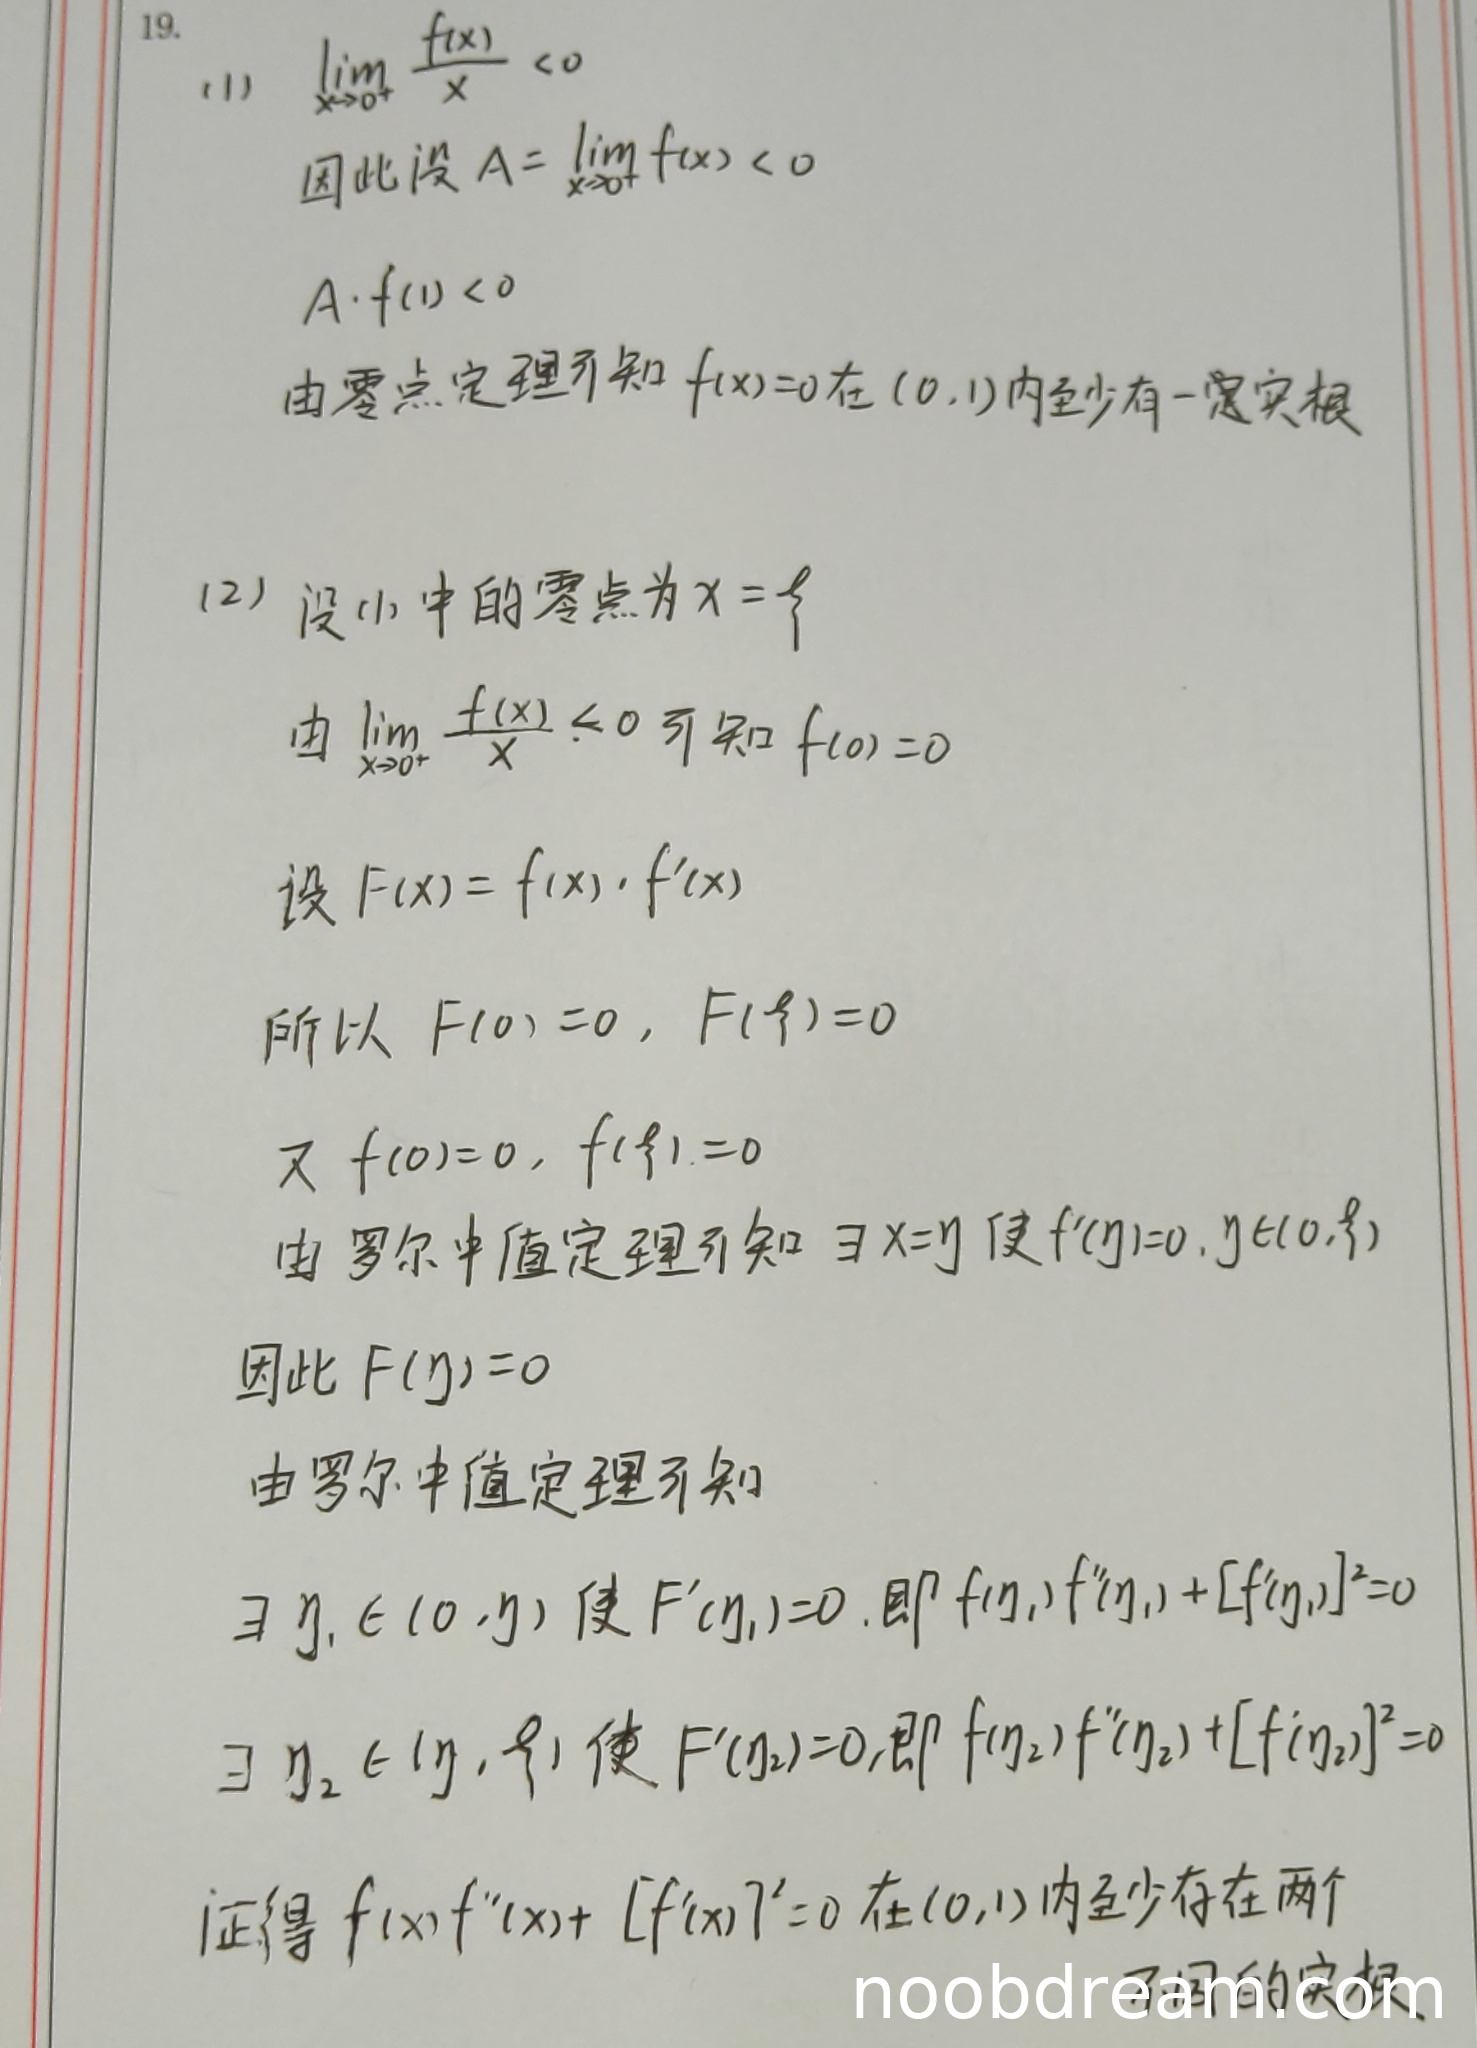 19.
(1) lim x→0⁺ f(x)/x <0
因此设 A= lim x→0⁺ f(x) < 0
A·f(1) <0
由零点定理可知 f(x)=0在(0,1)内至少有一实根
(2) 设(1)中的零点为x=ξ
由 lim x→0⁺ f(x)/x <0 可知 f(0)=0
设 F(x)= f(x)·f′(x)
所以 F(0)=0, F(ξ)=0
又 f(0)=0, f(ξ)=0
由罗尔中值定理可知 ∃x=η 使f′(η)=0, η∈(0,ξ)
因此 F(η)=0
由罗尔中值定理可知
∃ η₁ ∈(0,η) 使 F′(η₁)=0.即 f(η₁)f″(η₁)+[f′(η₁)]²=0
∃ η₂ ∈(η,ξ) 使 F′(η₂)=0,即 f(η₂)f″(η₂)+[f′(η₂)]²=0
证得 f(x)f″(x)+[f′(x)]²=0在(0,1)内至少存在两个
不同的实根
noobdream.com